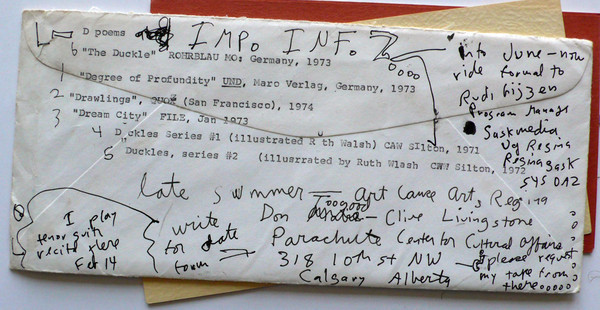 D poems
IMPO INF.
6 "The Duckle" ROHRBLAU MO: Germany, 1973
1 "Degree of Profundity" UND, Maro Verlag, Germany, 1973
2 "Drawlings", (San Francisco), 1974
3 "Dream City" FILE, Jan 1973
4 Dickles Series #1 (illustrated R th Walsh) CAW SIlton, 1971
5 Duckles, series #2 (illusrrated by Ruth Wlash CAW Silton, 1972
into June - now
ride formal to
Rudi
program manager
Saskmedia
U of Regina
Regina Sask
S4S 0A2
late summer - art
Toogood
Don - Clive Livingstone
I play
tenor guit
recite here
Feb 14
write
for date
forum
Parachute Center for Cultural Affairs
318 10th st NW
Calgary Alberta
please request
my tape from
there ooooo